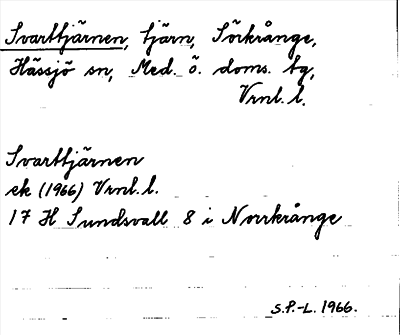 Svarttjärnen, tjärn, Sörkrånge,
Hässjö sn, Med. ö. doms. tg,
Vrnl. l.
Svarttjärnen
ek (1966) Vrnl. l.
17 H Sundsvall 8 i Norrkrånge
S.P.-L. 1966.